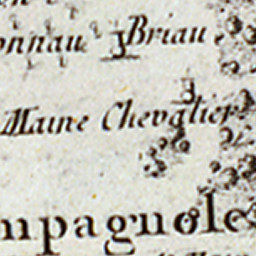 onnau Briau
Maine Chevalier
mpagnole